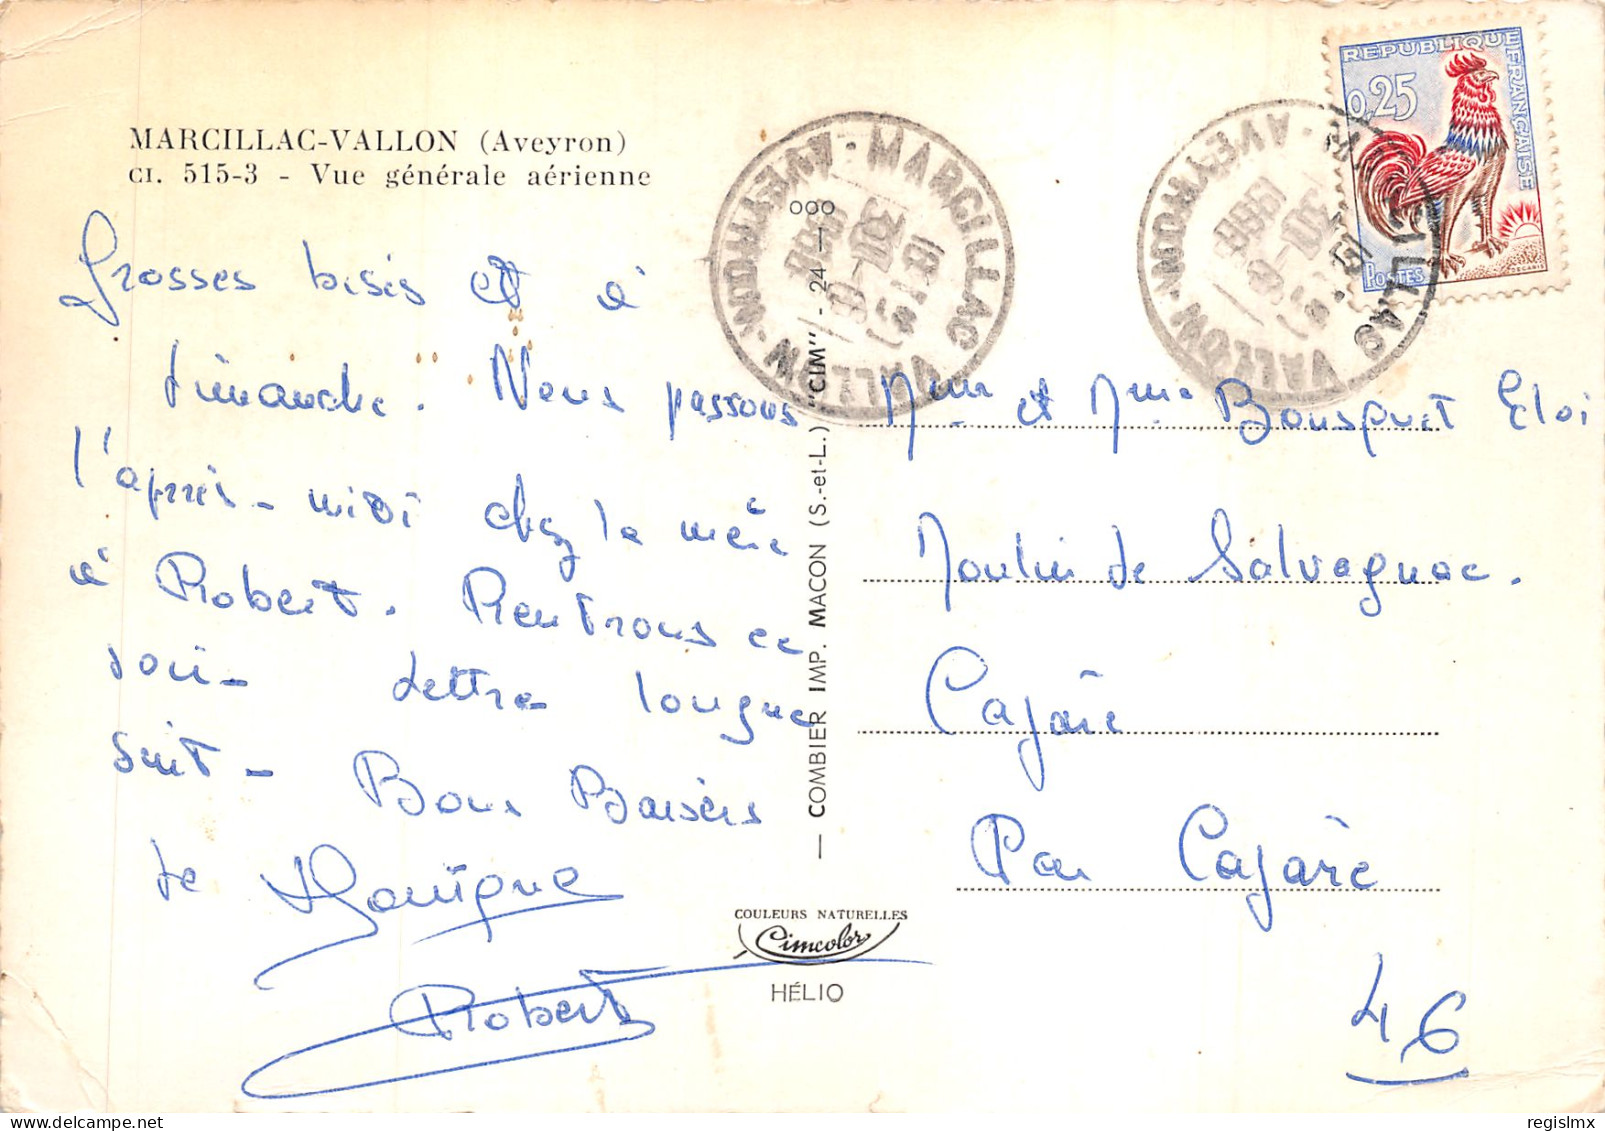 MARCILLAC-VALLON (Aveyron)
CI. 515-3 - Vue générale aérienne
Grosses bisis et à
dimanche. Nous passons
l'après-midi chez la mère
à Robert. Rentrons ce
soir - Lettre longue
suit - Bons Baisers
de Monique
Robert
COMBIER IMP. MACON (S.-et-L.) "CIM" - 24 -
ooo
COULEURS NATURELLES
Cimcolor
HÉLIO
MARCILLAC VALLON · AVEYRON
18H15
30-
MARCILLAC VALLON · AVEYRON
30-
REPUBLIQUE FRANÇAISE
0,25
POSTES
DECARIS
Mr et Mme Bousquet Eloi
Moulin de Salvagnac.
Cajarc
Par Cajarc
46
regislmx